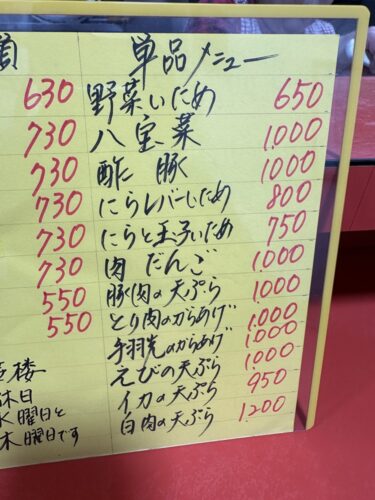 630
730
730
730
730
730
550
550
楼
休日
水曜日と
木曜日です
単品メニュー
野菜いため 650
八宝菜 1,000
酢豚 1,000
にらレバーいため 800
にらと玉子いため 750
肉だんご 1,000
豚肉の天ぷら 1,000
とり肉のからあげ 1,000
手羽先のからあげ 1,000
えびの天ぷら 1,000
イカの天ぷら 950
白肉の天ぷら 1,200